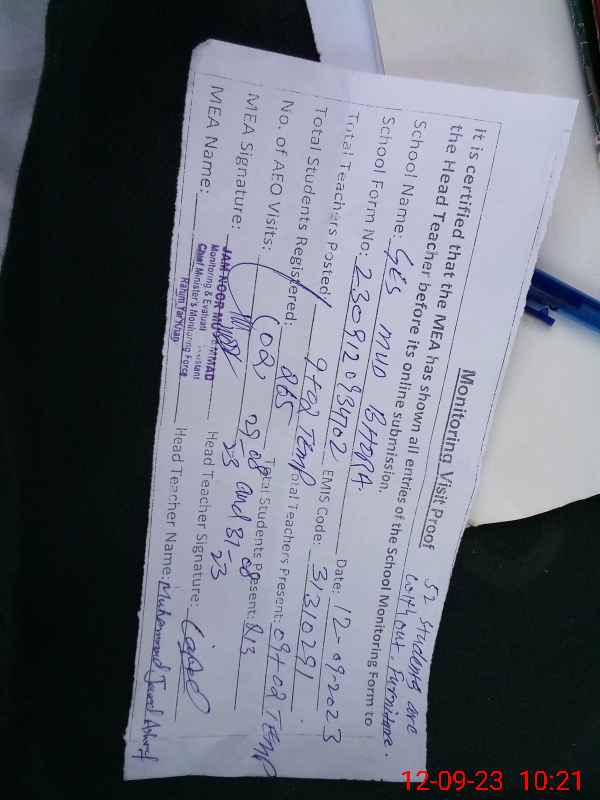 Monitoring Visit Proof
52 students are
without Furniture.
It is certified that the MEA has shown all entries of the School Monitoring Form to
the Head Teacher before its online submission.
School Name: GES MUD BHORA Date: 12-09-2023
School Form No: 230912093702 EMIS Code: 31310291
Total Teachers Posted: 9+02 TEMP Total Teachers Present: 09+02 TEMP
Total Students Registered: 265 Total Students Present: 213
No. of AEO Visits: (02) 29-08-23 and 31-08-23
MEA Signature: Head Teacher Signature:
MEA Name: JAM NOOR MUHAMMAD Head Teacher Name: Muhammad Javed Ashraf
Monitoring & Evaluati Assistant
Chief Minister's Monitoring Force
Rahim Yar Khan
12-09-23 10:21